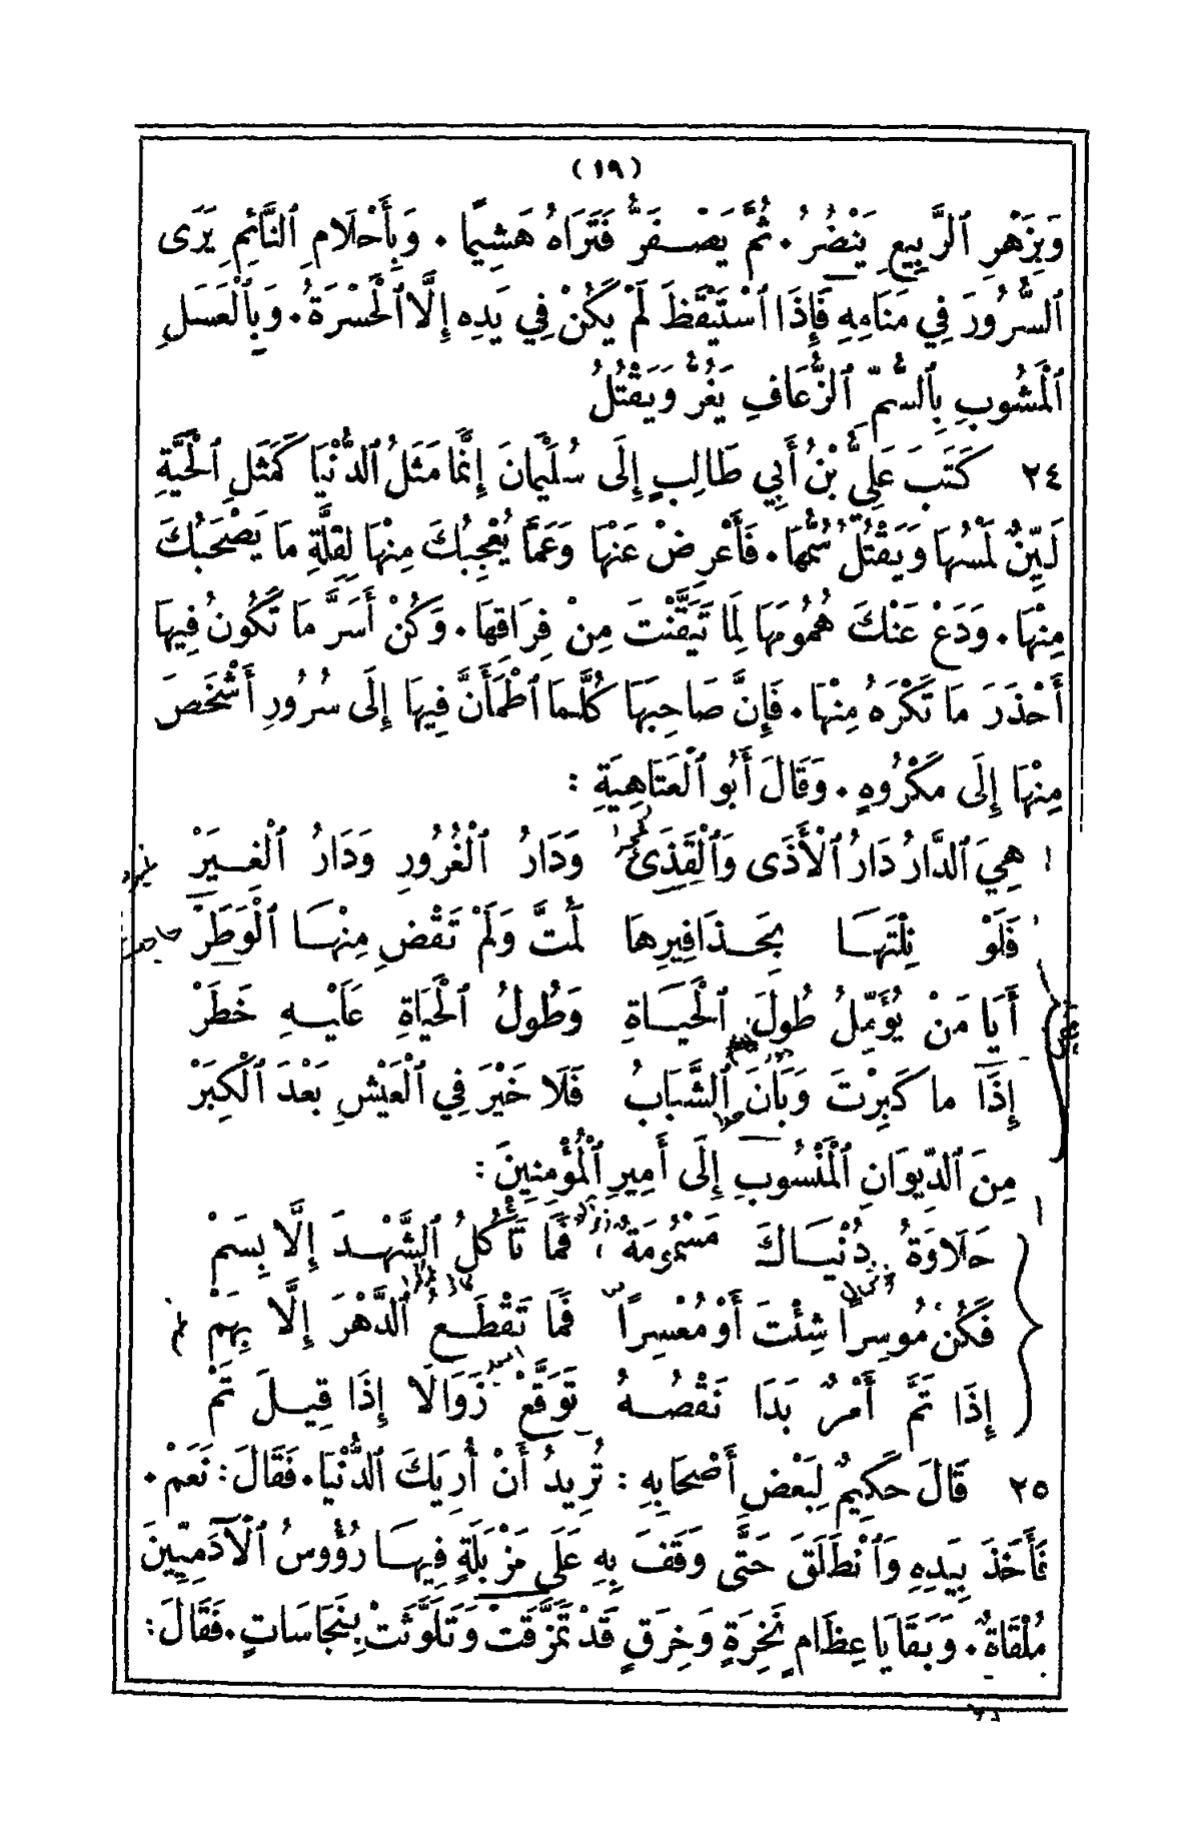 (١٩)
وَبِزَهْرِ ٱلرَّبِيعِ يَنْضُرُ. ثُمَّ يَصْفَرُّ فَتَرَاهُ هَشِيمًا. وَبِأَحْلَامِ ٱلنَّائِمِ يَرَى
ٱلسُّرُورَ فِي مَنَامِهِ فَإِذَا ٱسْتَيْقَظَ لَمْ يَكُنْ فِي يَدِهِ إِلَّا ٱلْحَسْرَةُ. وَبِالْعَسَلِ
ٱلْمَشُوبِ بِٱلسُّمِّ ٱلزُّعَافِ يَغُرُّ وَيَقْتُلُ
٢٤ كَتَبَ عَلِيُّ بْنُ أَبِي طَالِبٍ إِلَى سُلَيْمَانَ إِنَّمَا مَثَلُ ٱلدُّنْيَا كَمَثَلِ ٱلْحَيَّةِ
لَيِّنٌ لَمْسُهَا وَيَقْتُلُ سُمُّهَا. فَأَعْرِضْ عَنْهَا وَعَمَّا يُعْجِبُكَ مِنْهَا لِقِلَّةِ مَا يَصْحَبُكَ
مِنْهَا. وَدَعْ عَنْكَ هُمُومَهَا لِمَا تَيَقَّنْتَ مِنْ فِرَاقِهَا. وَكُنْ أَسَرَّ مَا تَكُونُ فِيهَا
أَحْذَرَ مَا تَكْرَهُ مِنْهَا. فَإِنَّ صَاحِبَهَا كُلَّمَا ٱطْمَأَنَّ فِيهَا إِلَى سُرُورٍ أَشْخَصَ
مِنْهَا إِلَى مَكْرُوهٍ. وَقَالَ أَبُو ٱلْعَتَاهِيَةِ :
هِيَ ٱلدَّارُ دَارُ ٱلْأَذَى وَٱلْقَذَى وَدَارُ ٱلْغُرُورِ وَدَارُ ٱلْغِيَرْ
فَلَوْ نِلْتَهَا بِحَذَافِيرِهَا لَمُتَّ وَلَمْ تَقْضِ مِنْهَا ٱلْوَطَرْ
أَيَا مَنْ يُؤَمِّلُ طُولَ ٱلْحَيَاةِ وَطُولُ ٱلْحَيَاةِ عَلَيْهِ خَطَرْ
إِذَا ما كَبِرْتَ وَبَانَ ٱلشَّبَابُ فَلَا خَيْرَ فِي ٱلْعَيْشِ بَعْدَ ٱلْكِبَرْ
مِنَ ٱلدِّيوَانِ ٱلْمَنْسُوبِ إِلَى أَمِيرِ ٱلْمُؤْمِنِينَ :
حَلَاوَةُ دُنْيَاكَ مَسْمُومَةٌ فَمَا تَأْكُلُ ٱلشَّهْدَ إِلَّا بِسَمْ
فَكُنْ مُوسِرًا شِئْتَ أَوْ مُعْسِرًا فَمَا تَقْطَعُ ٱلدَّهْرَ إِلَّا بِهَمْ
إِذَا تَمَّ أَمْرٌ بَدَا نَقْصُهُ تَوَقَّعْ زَوَالًا إِذَا قِيلَ تَمْ
٢٥ قَالَ حَكِيمٌ لِبَعْضِ أَصْحَابِهِ : تُرِيدُ أَنْ أُرِيَكَ ٱلدُّنْيَا. فَقَالَ : نَعَمْ.
فَأَخَذَ بِيَدِهِ وَٱنْطَلَقَ حَتَّى وَقَفَ بِهِ عَلَى مَزْبَلَةٍ فِيهَا رُؤُوسُ ٱلْآدَمِيِّينَ
مُلْقَاةٌ. وَبَقَايَا عِظَامٍ نَخِرَةٍ وَخِرَقٍ قَدْ تَمَزَّقَتْ وَتَلَوَّثَتْ بِنَجَاسَاتٍ. فَقَالَ :